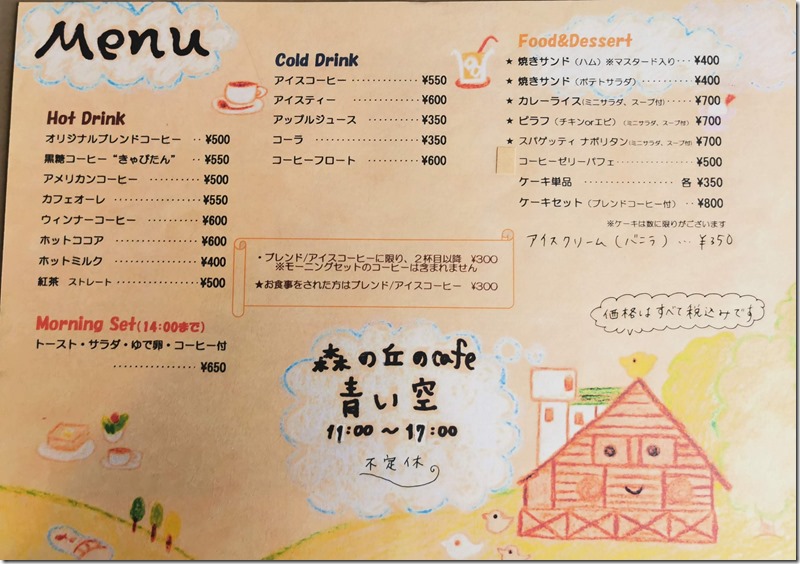 Menu
Hot Drink
オリジナルブレンドコーヒー ‥ ¥500
黒糖コーヒー“きゃぴたん” ‥ ¥550
アメリカンコーヒー ‥‥‥‥ ¥500
カフェオーレ ‥‥‥‥‥‥ ¥550
ウィンナーコーヒー ‥‥‥‥ ¥600
ホットココア ‥‥‥‥‥‥ ¥600
ホットミルク ‥‥‥‥‥‥ ¥400
紅茶 ストレート ‥‥‥‥‥ ¥500
Morning Set(14:00まで)
トースト・サラダ・ゆで卵・コーヒー付
‥‥‥‥‥‥‥ ¥650
Cold Drink
アイスコーヒー ‥‥‥‥‥ ¥550
アイスティー ‥‥‥‥‥‥ ¥600
アップルジュース ‥‥‥‥ ¥350
コーラ ‥‥‥‥‥‥‥‥ ¥350
コーヒーフロート ‥‥‥‥ ¥600
Food&Dessert
★ 焼きサンド（ハム）※マスタード入り‥‥ ¥400
★ 焼きサンド（ポテトサラダ）‥‥‥‥‥ ¥400
★ カレーライス(ミニサラダ、スープ付)‥‥‥ ¥700
★ ピラフ（チキンorエビ）（ミニサラダ、スープ付） ¥700
★ スパゲッティ ナポリタン(ミニサラダ、スープ付) ¥700
コーヒーゼリーパフェ‥‥‥‥‥‥ ¥500
ケーキ単品 ‥‥‥‥‥‥‥ 各 ¥350
ケーキセット（ブレンドコーヒー付） ‥ ¥800
※ケーキは数に限りがございます
アイスクリーム（バニラ）… ¥350
・ブレンド/アイスコーヒーに限り、2杯目以降 ¥300
※モーニングセットのコーヒーは含まれません
★お食事をされた方はブレンド/アイスコーヒー ¥300
価格はすべて税込みです
森の丘のcafe
青い空
11:00 〜 17:00
不定休